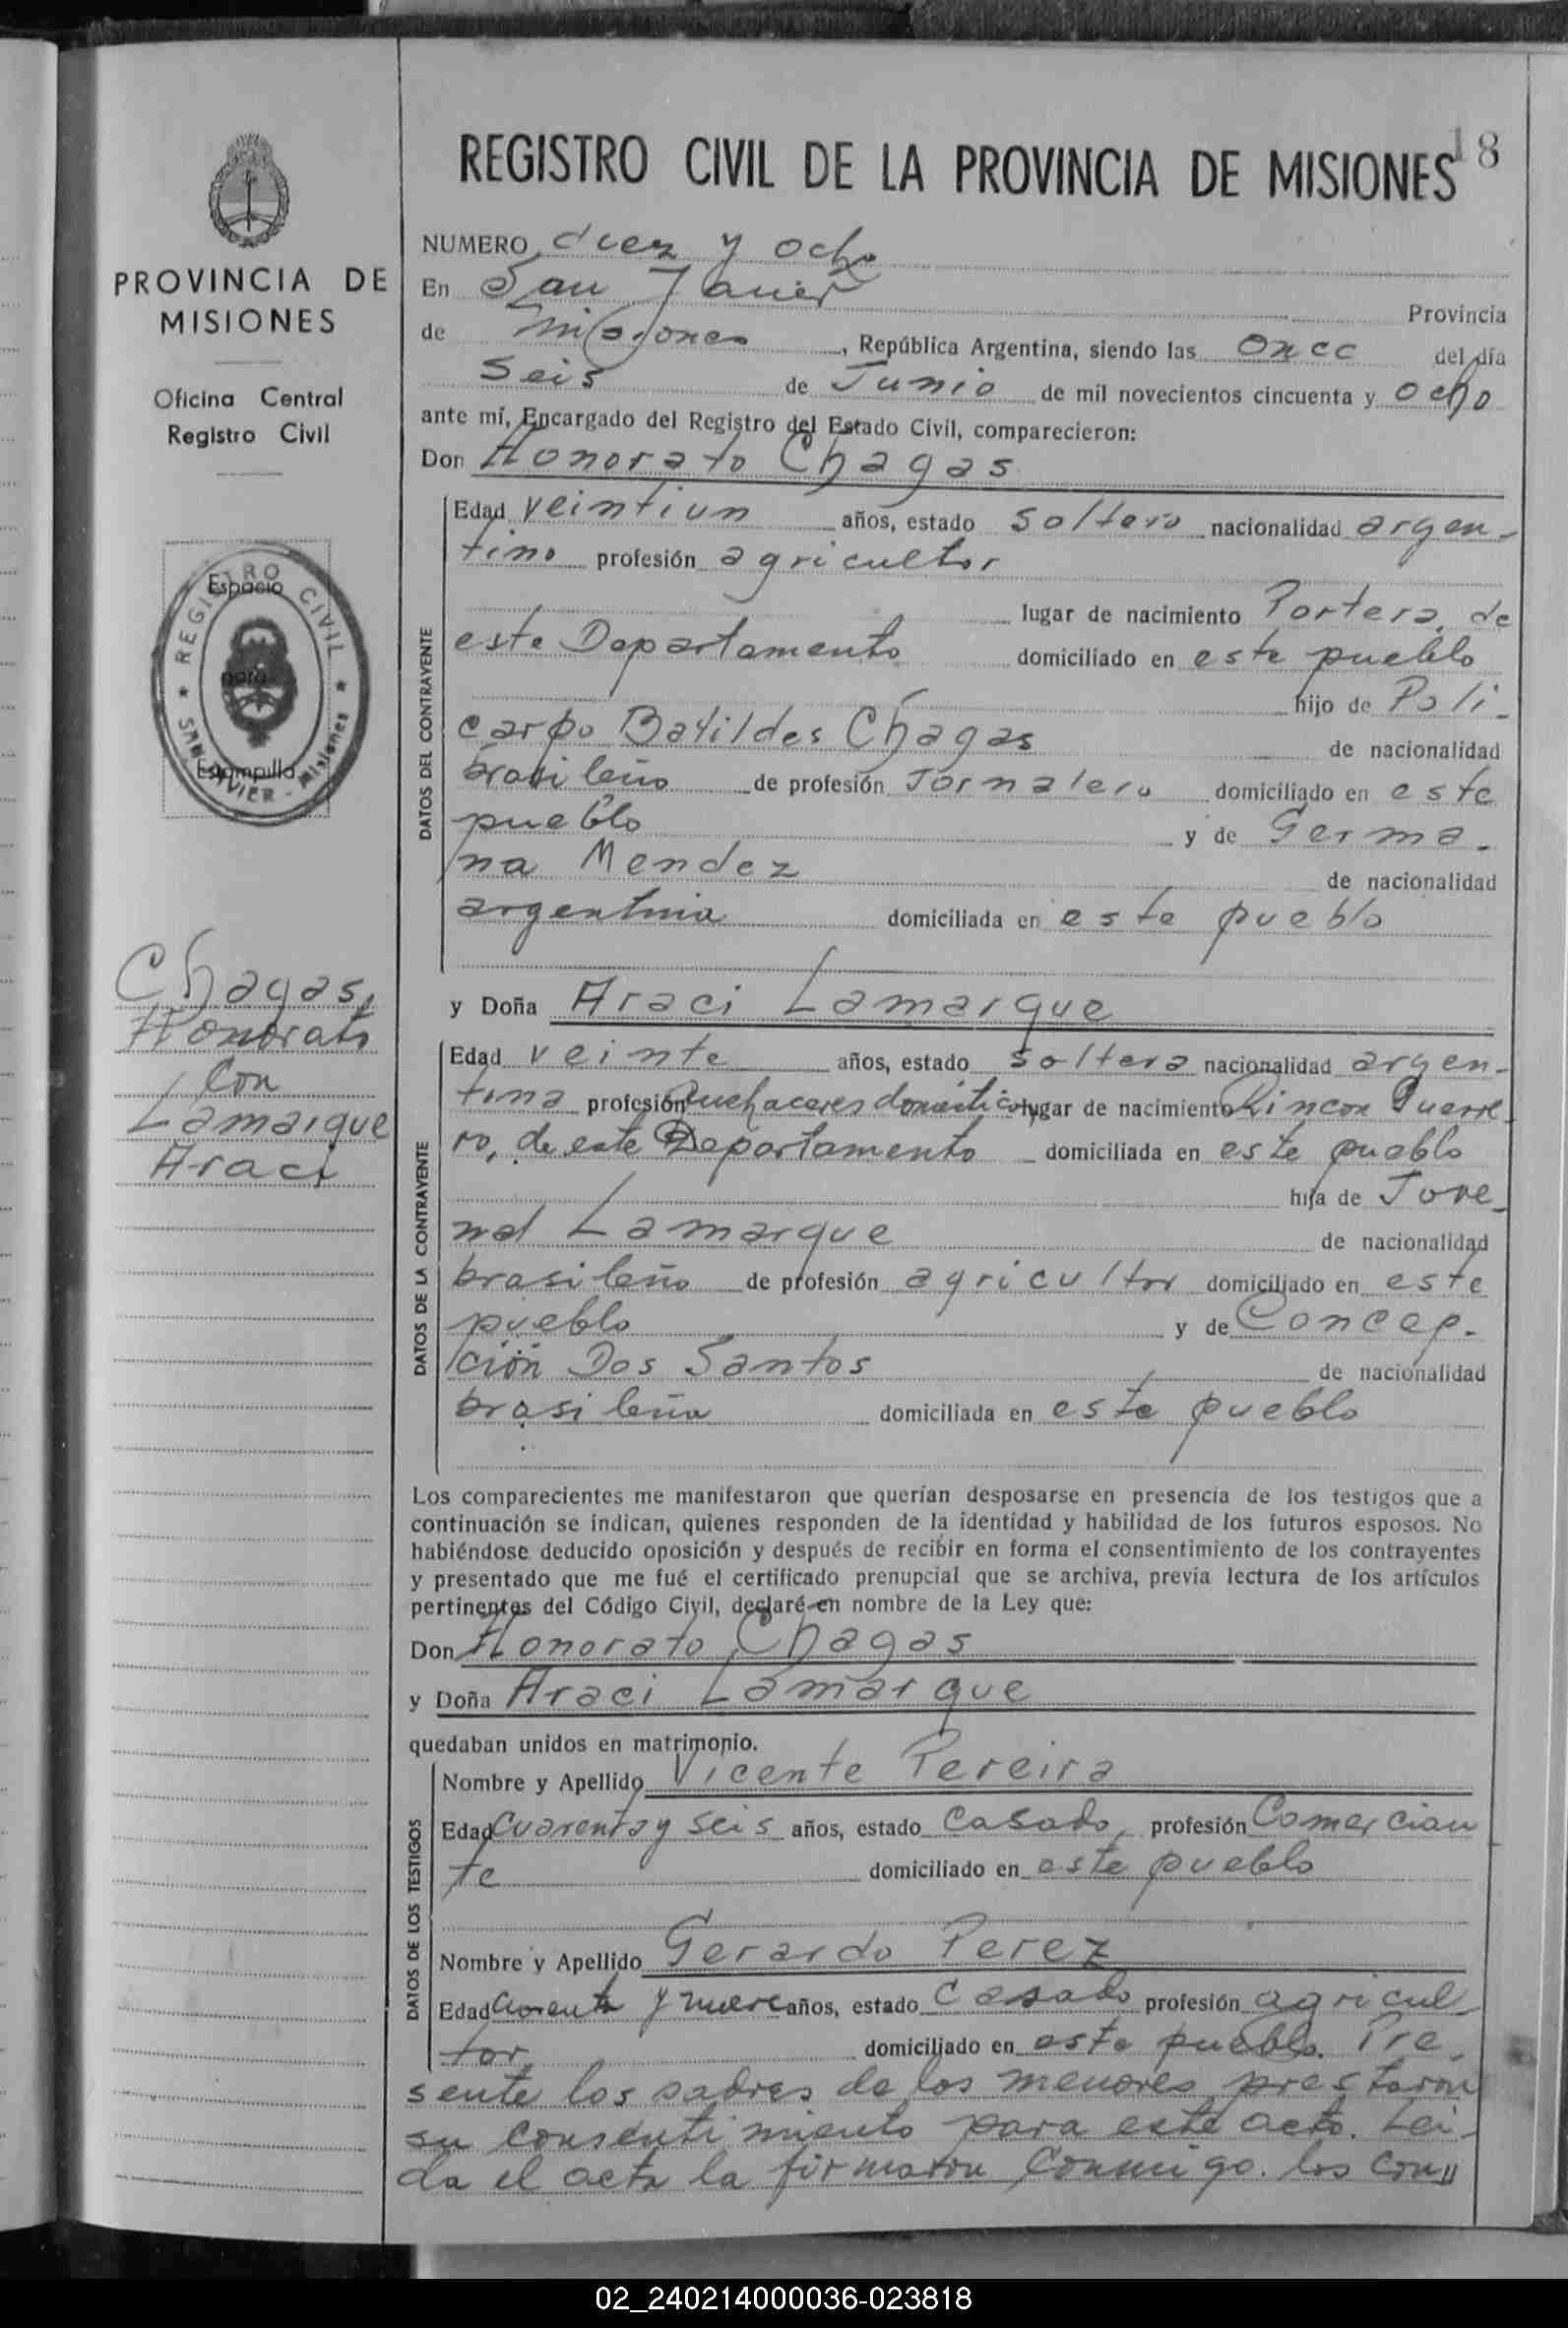 18
REGISTRO CIVIL DE LA PROVINCIA DE MISIONES
PROVINCIA DE
MISIONES
Oficina Central
Registro Civil
REGISTRO CIVIL
SAN JAVIER - Misiones
Espacio
para
Estampilla
Chagas,
Honorato
Con
Lamarque
Araci
NUMERO diez y ocho
En San Javier
Provincia
de Misiones, República Argentina, siendo las once del día
Seis de Junio de mil novecientos cincuenta y ocho
ante mí, Encargado del Registro del Estado Civil, comparecieron:
Don Honorato Chagas
DATOS DEL CONTRAYENTE
Edad veintiun años, estado soltero nacionalidad argen-
tino profesión agricultor
lugar de nacimiento Portera, de
este Departamento domiciliado en este pueblo
hijo de Poli-
carpo Batildes Chagas de nacionalidad
brasileño de profesión Jornalero domiciliado en este
pueblo y de Germa-
na Mendez de nacionalidad
argentina domiciliada en este pueblo
y Doña Araci Lamarque
DATOS DE LA CONTRAYENTE
Edad veinte años, estado soltera nacionalidad argen-
tina profesión quehaceres domésticos lugar de nacimiento Rincon Guerre-
ro, de este Departamento domiciliada en este pueblo
hija de Jove-
nal Lamarque de nacionalidad
brasileño de profesión agricultor domiciliado en este
pueblo y de Concep-
ción Dos Santos de nacionalidad
brasileña domiciliada en este pueblo
Los comparecientes me manifestaron que querían desposarse en presencia de los testigos que a
continuación se indican, quienes responden de la identidad y habilidad de los futuros esposos. No
habiéndose deducido oposición y después de recibir en forma el consentimiento de los contrayentes
y presentado que me fué el certificado prenupcial que se archiva, previa lectura de los artículos
pertinentes del Código Civil, declaré en nombre de la Ley que:
Don Honorato Chagas
y Doña Araci Lamarque
quedaban unidos en matrimonio.
DATOS DE LOS TESTIGOS
Nombre y Apellido Vicente Pereira
Edad Cuarenta y seis años, estado Casado, profesión Comercian
te domiciliado en este pueblo
Nombre y Apellido Gerardo Perez
Edad Cuarenta y nueve años, estado Casado profesión agricul
tor domiciliado en este pueblo. Pre-
sente los padres de los menores prestaron
su consentimiento para este acto. Lei-
da el acta la firmaron conmigo. los con"
02_240214000036-023818